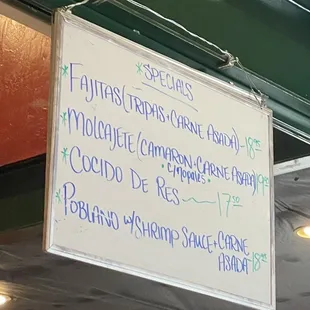 *SPECIALS
*FAJITAS (TRIPAS + CARNE ASADA) - 18
*MOLCAJETE (CAMARON + CARNE ASADA) 19
• C/NOPALES •
*COCIDO DE RES 17
*POBLANO W/SHRIMP SAUCE + CARNE
ASADA 18